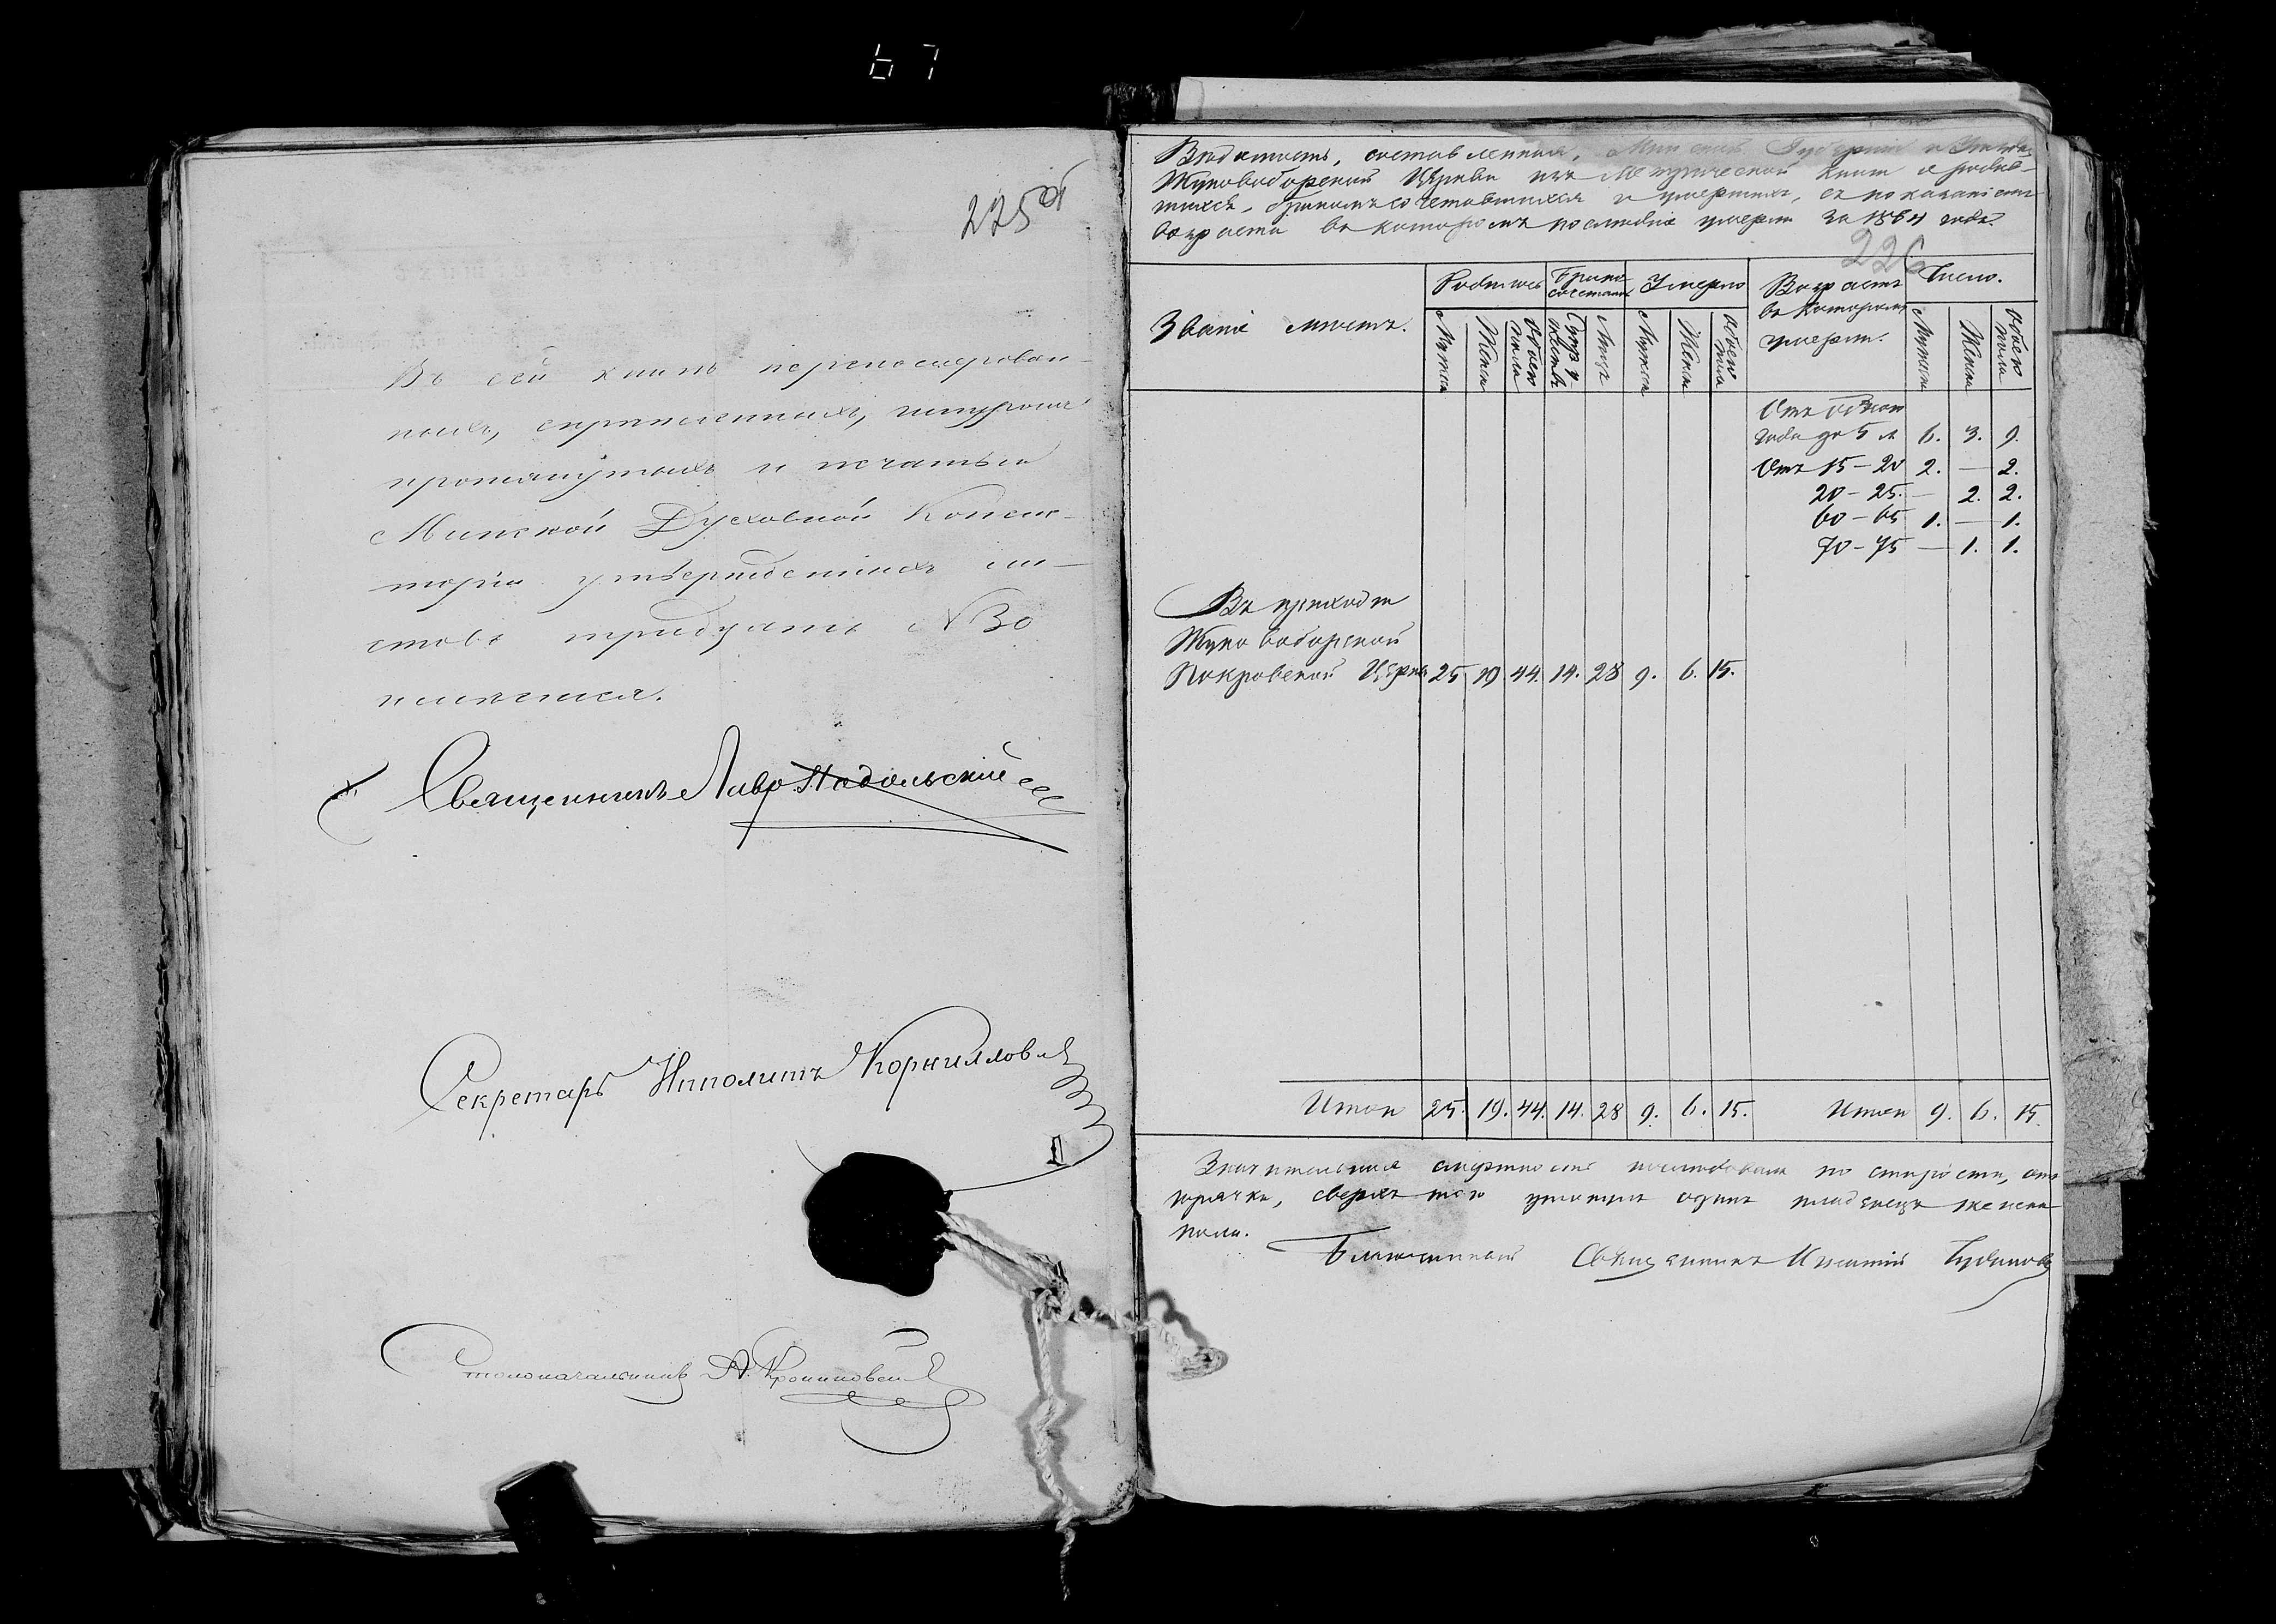 67
225 об
Въ сей книгѣ перенумерован-
ныхъ, скрѣпленныхъ, шнуромъ
протянутыхъ и печатью
Минской Духовной Консис-
торіи утвержденныхъ ли-
стовъ тридцать №30
имѣется.
Священникъ Лавр. Надольскій
Секретарь Ипполитъ Корниловъ
Столоначальникъ А.
Вѣдомость, составленная, Минской Губерніи и Уѣзда
Жуковоборской Церкви изъ Метрической книги о родив-
шихся, бракомъ сочетавшихся и умершихъ, съ показаніемъ
возраста въ которомъ послѣдніе умерли за 1864 годъ.
226
Званіе мѣстъ. Родилось Брако-сочетан. Умерло Возрастъ въ которомъ умерли. Число.
Мужск. Женск. Обоего пола Супружествъ Лицъ Мужск. Женск. Обоего пола Мужск. Женск. Обоего пола
Отъ одного
года до 5 л 6. 3. 9.
Отъ 15-20 2. — 2.
20-25. — 2. 2.
60-65 1. — 1.
70-75 — 1. 1.
Въ приходѣ
Жуковоборской
Покровской Церкви 25 19 44. 14. 28 9. 6. 15.
Итого 25. 19. 44. 14. 28 9. 6. 15. Итого 9. 6. 15.
Значительная смертность послѣдовала по старости, отъ
горячки, сверхъ того умеръ одинъ младенецъ женска
пола.
Благочинный Священникъ Игнатій